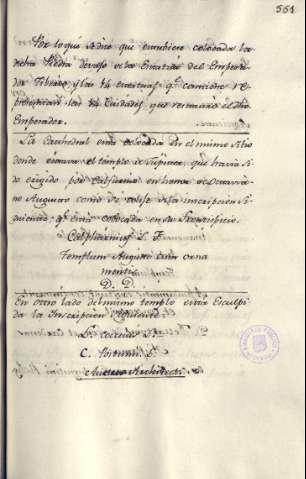 561
Por lo que se dice que estubiese colocada la
dicha Piedra devajo de la Estatua del Empera-
dor Tiberio y las 14 estatuas q.e
las 14 Ciudades que reedificó el dho
Emperador.
La Cathedral está colocada en el mismo sitio
donde estava el templo de que havia si
do erigido por Calfurnio en honra de Octavia-
no Augusto como se colije de la inscripcion Si-
guiente, q.e está colocada en su Frontispicio.
Calphurnius L. F.
Templum Augusto cum orna
mentis
D. D.
En otro lado del mismo templo está Esculpi-
da la Inscripcion siguiente.
L. Cocceius
C. Postumi L.
Auctus Architect.